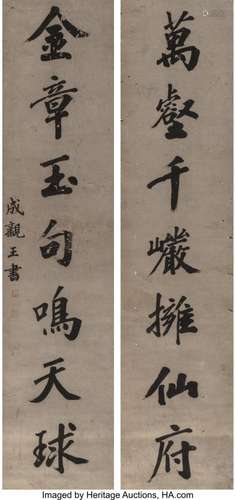 萬壑千巖擁仙府
金章玉句鳴天球
成親王書
Imaged by Heritage Auctions, HA.com